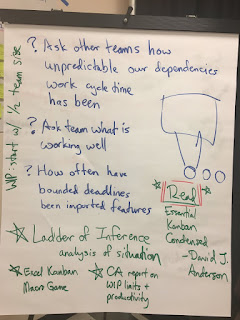 WIP: start w/ 1/2 team size
? Ask other teams how
unpredictable our dependencies
work cycle time
has been
? Ask team what is
working well
? How often have
bounded deadlines
been imported features
Read
Essential
Kanban
Condensed
- David J.
Anderson
Ladder of Inference
analysis of situation
Excel Kanban
Macro Game
CA report on
WIP limits +
productivity